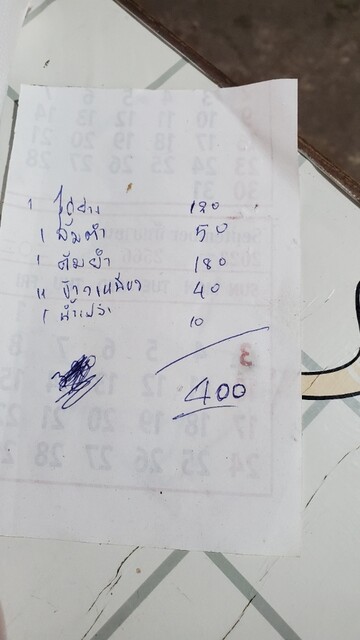 1 ไก่ย่าง 120
1 ส้มตำ 50
1 ต้มยำ 180
4 ข้าวเหนียว 40
1 น้ำเปล่า 10
400